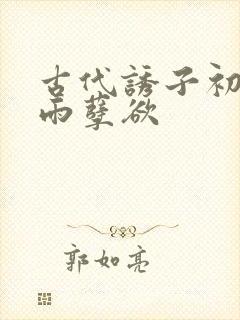 古代誘子初
雨孽欲
郭如亮